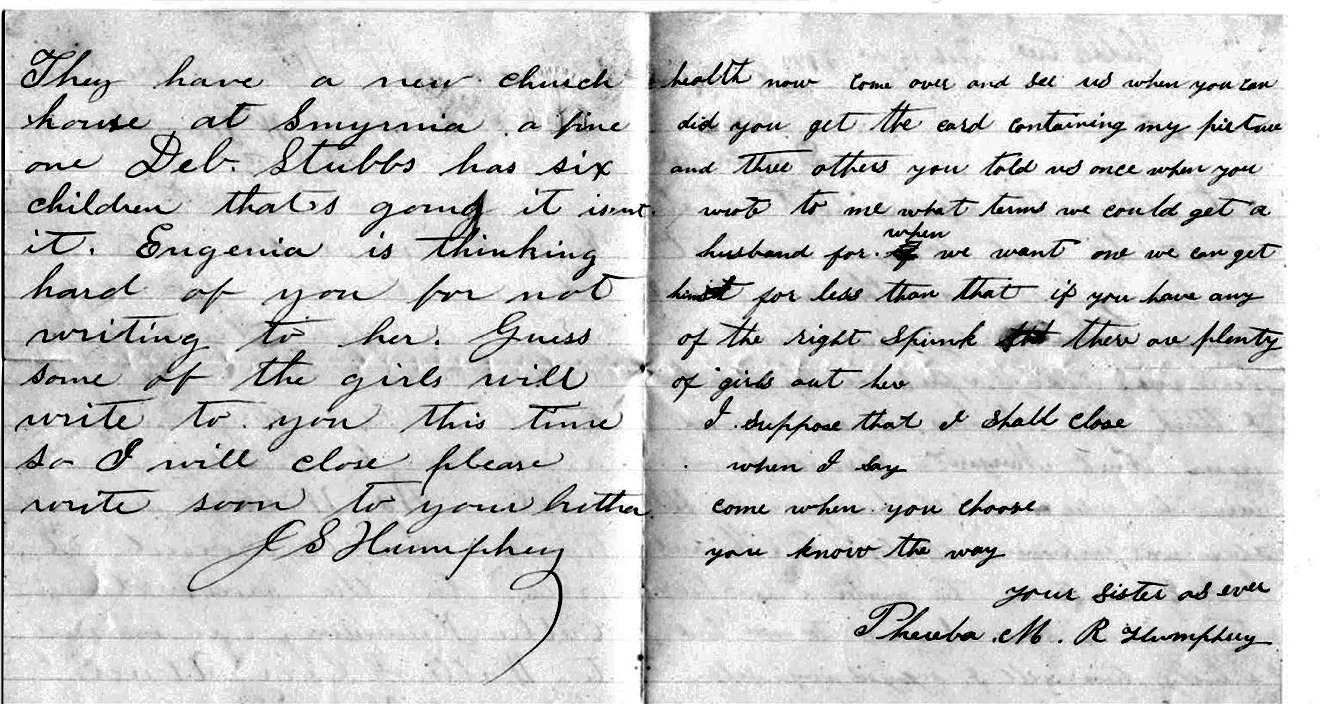 They have a new church
house at Smyrnia a fine
one Deb. Stubbs has six
children that's going it isnt
it. Eugenia is thinking
hard of you for not
writing to her. Guess
some of the girls will
write to you this time
so I will close please
write soon to your brother
J S Humphrey
health now come over and see us when you can
did you get the card containing my picture
and three others you told us once when you
wrote to me what terms we could get a
husband for. when we want one we can get
him for less than that if you have any
of the right Spunk there are plenty
of girls out her
I suppose that I shall close
when I say
come when you choose
you know the way
your sister as ever
Pheeba. M. R Humphrey